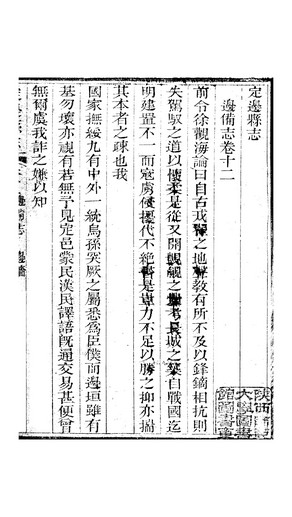 定邊縣志
邊備志卷十二
前令徐觀海論曰自古戎之地教有所不及以鋒鏑相抗則
失駕馭之道以懷柔是從又開覬覦之考長城之築自戰國迄
明建置不一而寇虜侵擾代不絕書是豈力不足以勝之抑亦揣
其本者之疎也我
國家撫綏九有中外一統烏孫突厥之屬悉為臣僕而邊垣雖有
基勿壞亦視有若無予見定邑蒙民漢民譯語既通交易甚便會
無爾虞我詐之嫌以知
邊備志
陝西
大學圖書
館圖書章